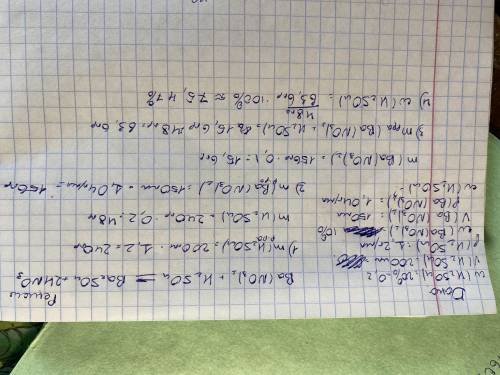 Дано
w(H₂SO₄)=20%=0,2
V(H₂SO₄)=200мл
ρ(H₂SO₄)=1.2г/мл
w(Ba(NO₃)₂)= 10%
V(Ba(NO₃)₂)=150мл
ρ(Ba(NO₃)₂)=1,04г/мл
w(H₂SO₄)-
Решение
Ba(NO₃)₂ + H₂SO₄ = Ba₂SO₄+2HNO₃
1) m р-ра(H₂SO₄)=200мл · 1,2=240г
m(H₂SO₄)=240г · 0,2=48г
2) m р-ра(Ba(NO₃)₂)=150мл · 1,04г/мл=156г
m(Ba(NO₃)₂)=156г · 0,1=15,6г
3) m р-ра(Ba(NO₃)₂+H₂SO₄)= 15,6г+48г=63,6г
4) w(H₂SO₄)= 48г/63,6г · 100% ≈ 75,47%